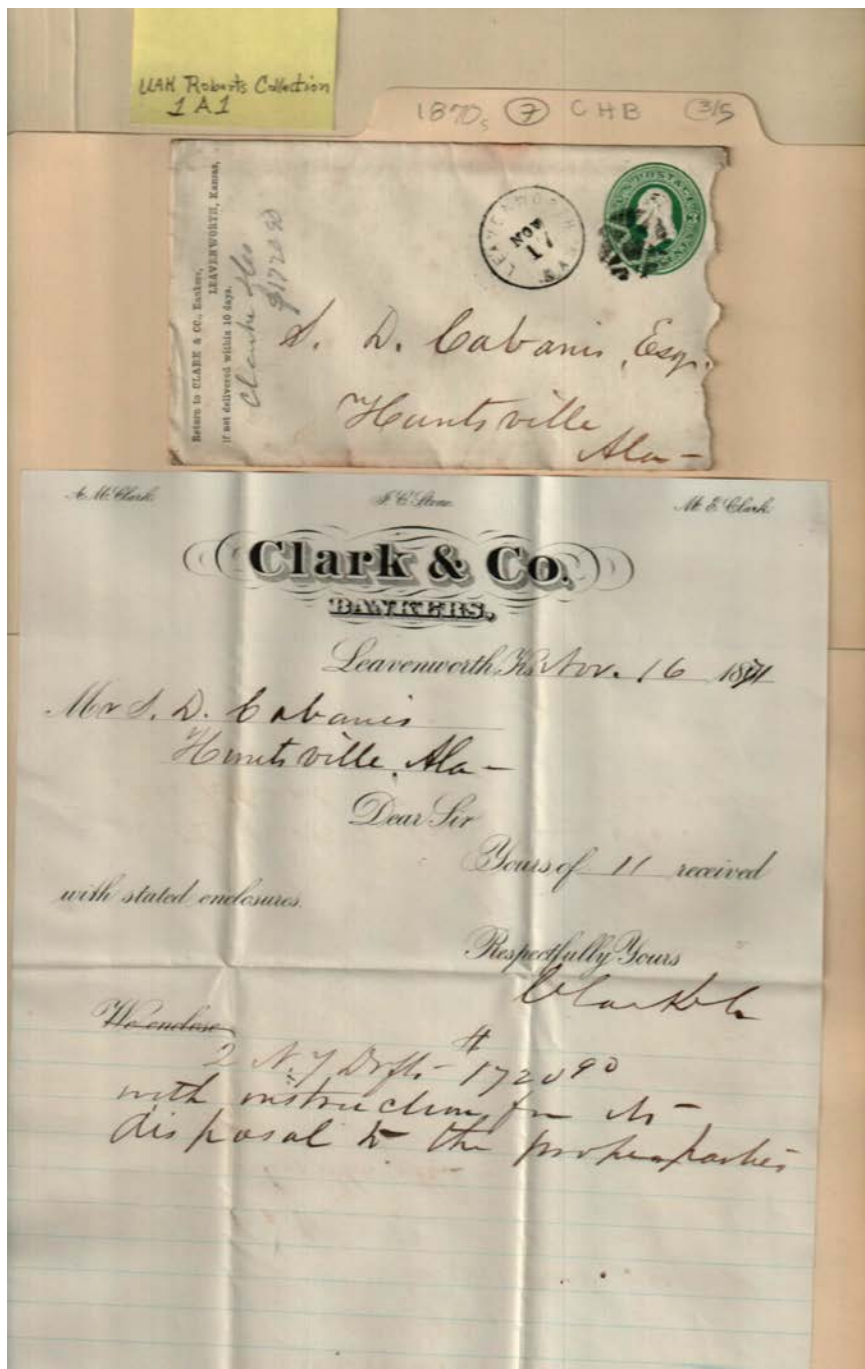 UAH Roberts Collection
1 A 1
1870s 7 CHB 3/5
Return to CLARK & CO., Bankers,
LEAVENWORTH, Kansas,
If not delivered within 10 days.
$1720 90
LEAVENWORTH
NOV
17
U.S. POSTAGE
S. D. Cabanis, Esq.
Huntsville
Ala—
A. M. Clark. M. E. Clark.
Clark & Co.
BANKERS,
Leavenworth, Ks. Nov. 16 1871
Mr S. D. Cabanis
Huntsville, Ala—
Dear Sir
Yours of 11 received
with stated enclosures.
Respectfully Yours
Clark & Co
We enclose
2 N. Y Drfts— $1720 90
with instructions for its
disposal to the proper parties